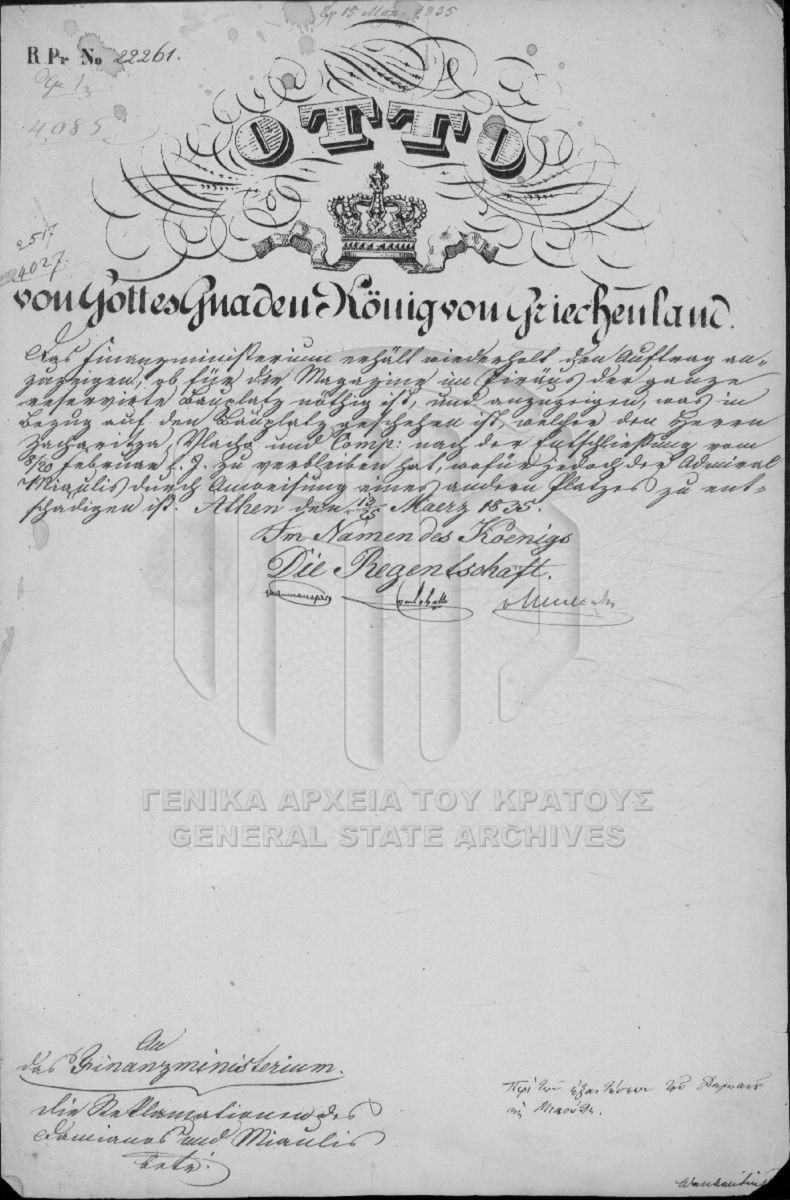 15 Mar. 1835
R Pr No 22261.
4085
2517
4027.
OTTO
von Gottes Gnaden König von Griechenland.
Das Finanzministerium erhält wiederholt den Auftrag an-
zuzeigen, ob für die Magazine im Piräus der ganze
reservirte Bauplatz nöthig ist, und anzuzeigen, was in
Bezug auf den Bauplatz geschehen ist, welcher den Herrn
Zacharitza, Vlacho und Comp: nach der Entschließung vom
8/20 Februar l. J. zu verbleiben hat, wofür jedoch der Admiral
Miaulis durch Anweisung eines andern Platzes zu ent-
schädigen ist. Athen den 13/25 Maerz 1835.
Im Namen des Koenigs
Die Regentschaft.
ΓΕΝΙΚΑ ΑΡΧΕΙΑ ΤΟΥ ΚΡΑΤΟΥΣ
GENERAL STATE ARCHIVES
An
das Finanzministerium.
Die Reklamationen des
Damianos und Miaulis
betr.
Περὶ τῶν τοῦ